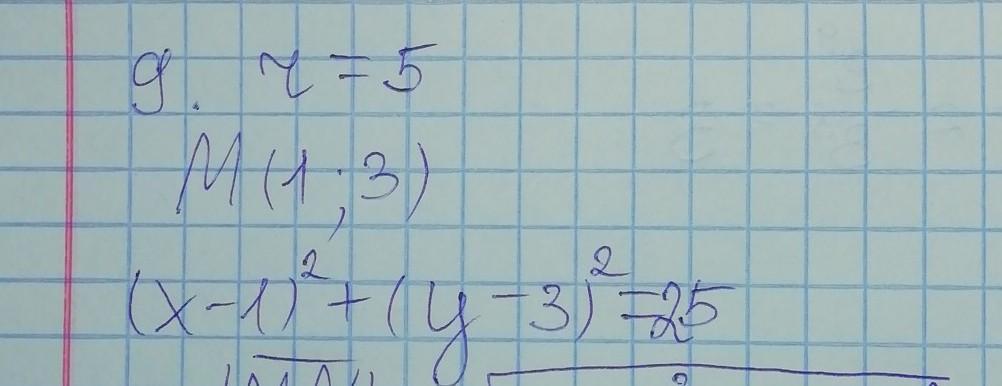 9. r = 5
M(1;3)
(x-1)² + (y-3)² = 25